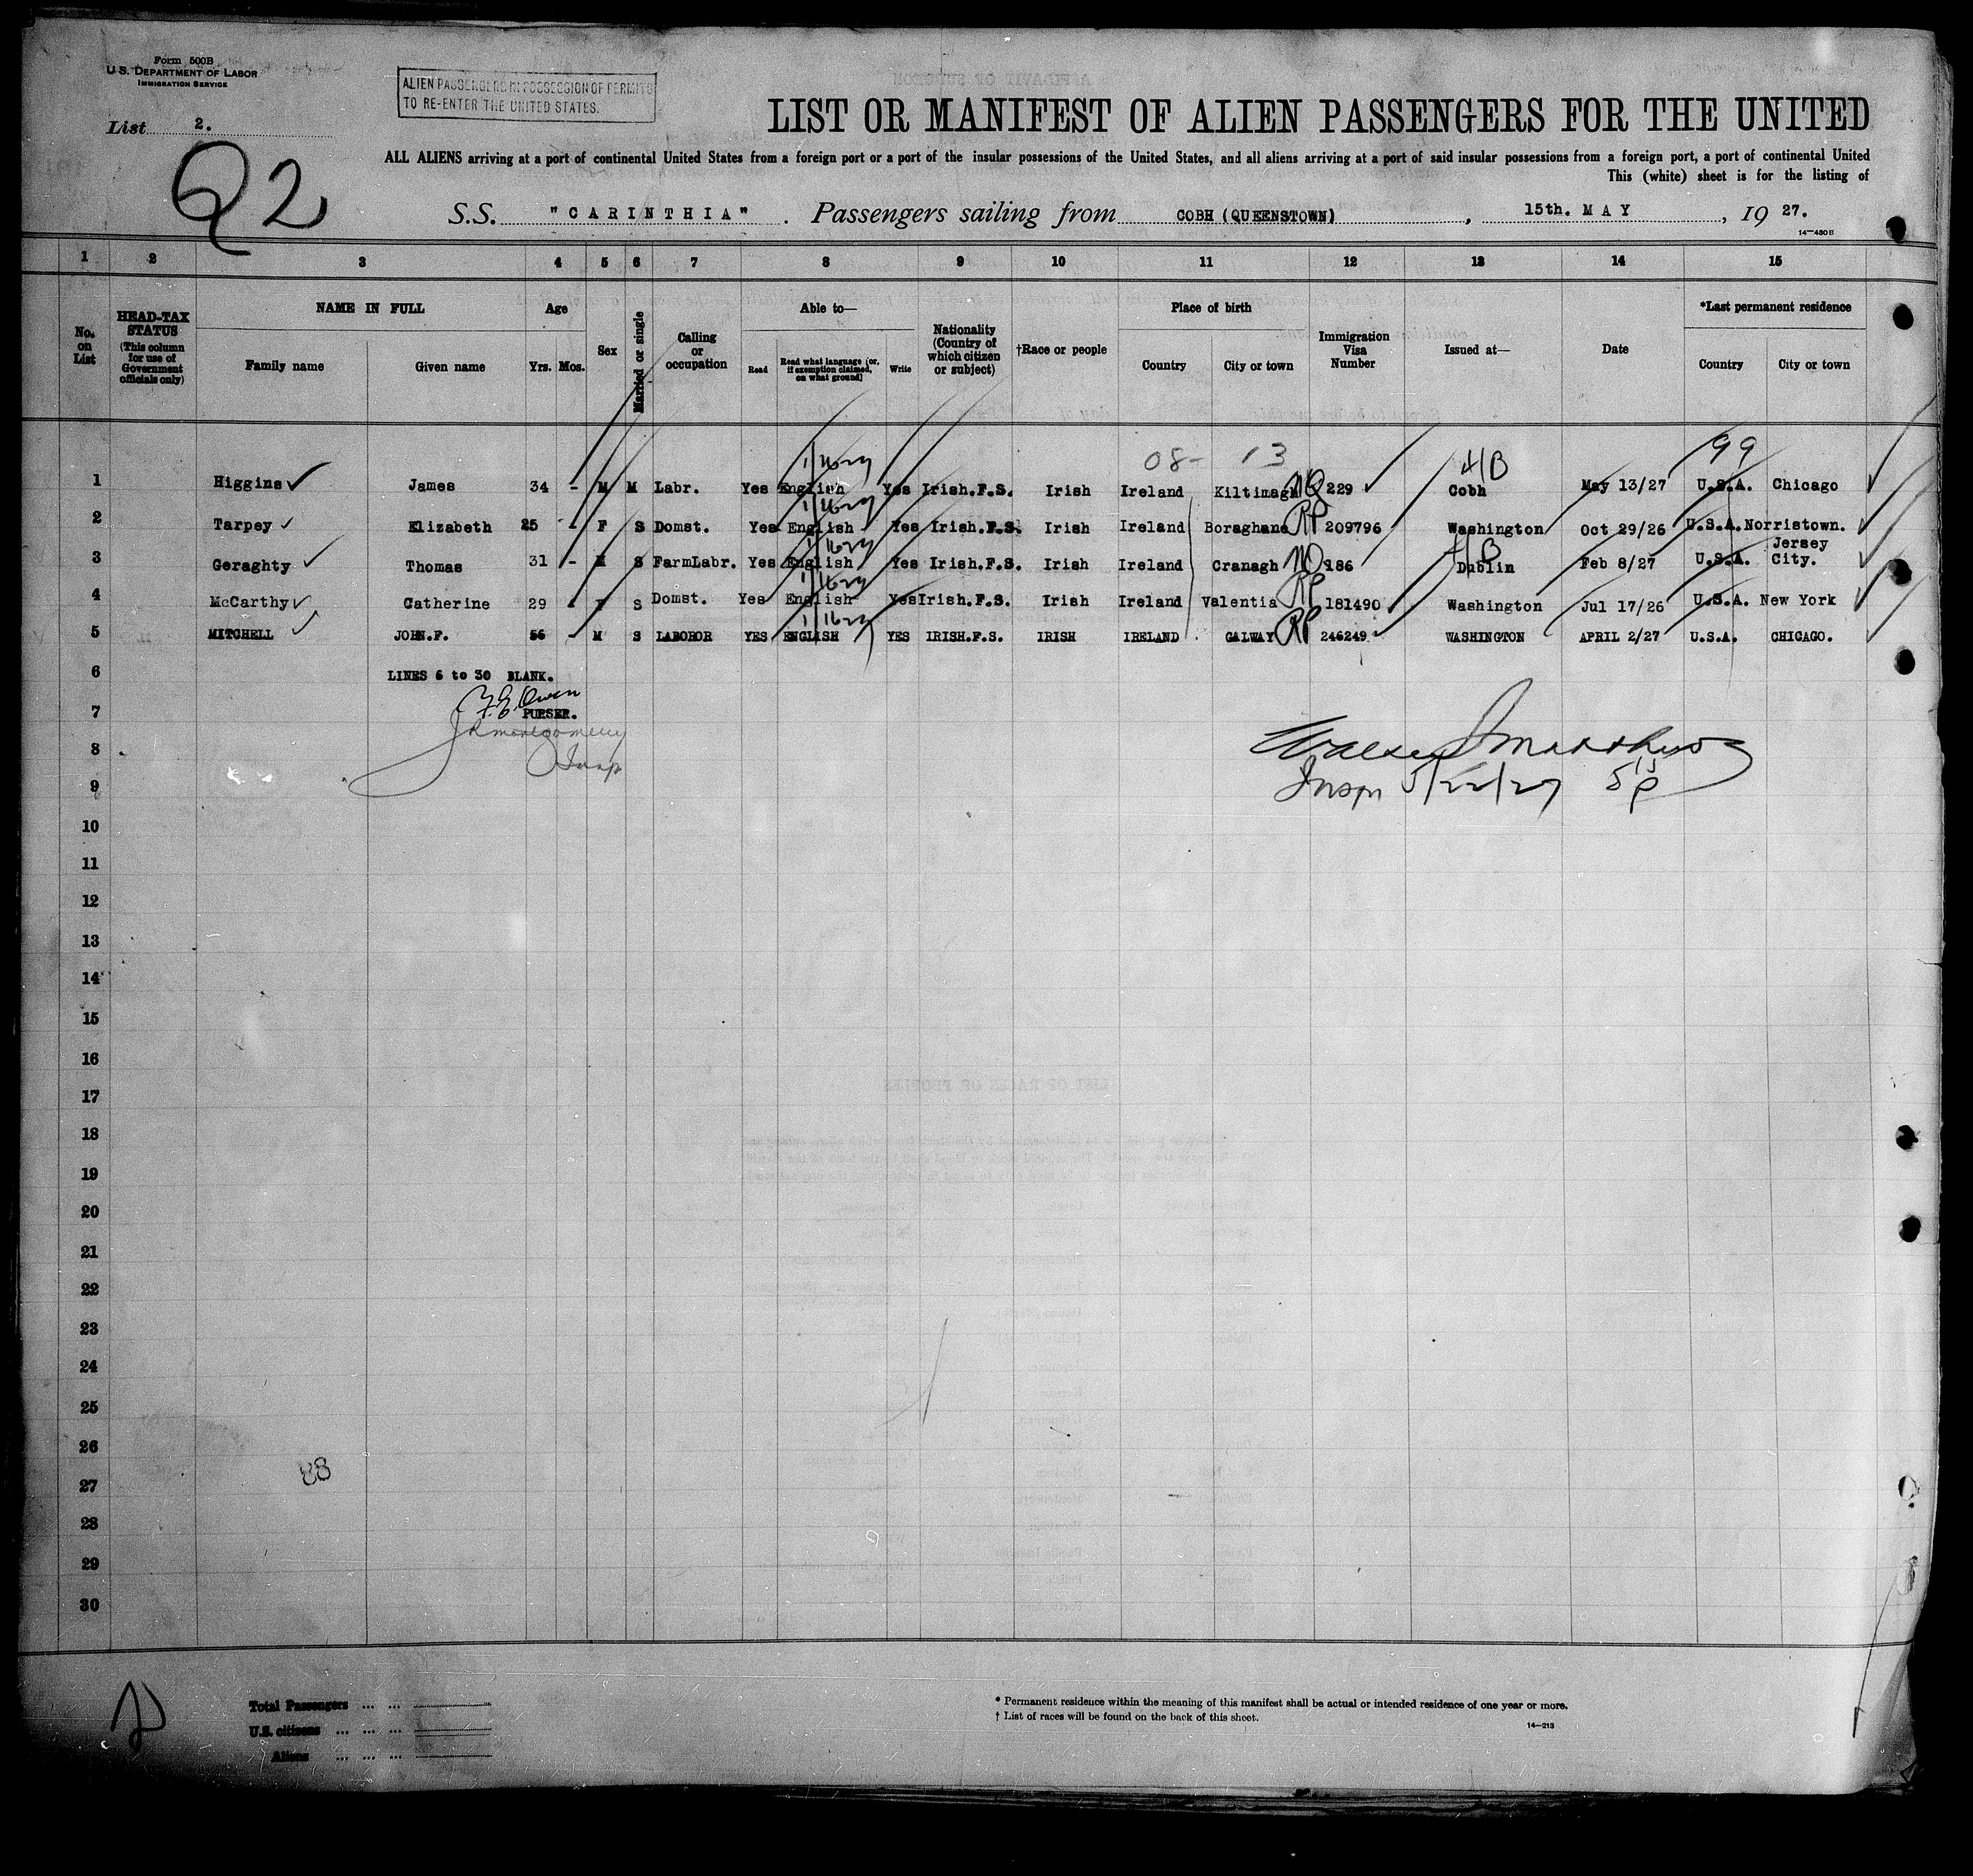 Form 500B
U.S. DEPARTMENT OF LABOR
IMMIGRATION SERVICE
ALIEN PASSENGERS IN POSSESSION OF PERMITS
TO RE-ENTER THE UNITED STATES.
List 2.
Q2
LIST OR MANIFEST OF ALIEN PASSENGERS FOR THE UNITED
ALL ALIENS arriving at a port of continental United States from a foreign port or a port of the insular possessions of the United States, and all aliens arriving at a port of said insular possessions from a foreign port, a port of continental United
This (white) sheet is for the listing of
S.S. "CARINTHIA" . Passengers sailing from COBH (QUEENSTOWN) , 15th. MAY , 19 27.
14-430B
1 2 3 4 5 6 7 8 9 10 11 12 13 14 15
No. on List
HEAD-TAX STATUS (This column for use of Government officials only)
NAME IN FULL Family name Given name
Age Yrs. Mos.
Sex
Married or single
Calling or occupation
Able to— Read Read what language (or, if exemption claimed, on what ground) Write
Nationality (Country of which citizen or subject)
†Race or people
Place of birth Country City or town
Immigration Visa Number
Issued at—
Date
*Last permanent residence Country City or town
08- 13 99
1 Higgins James 34 - M M Labr. Yes English Yes Irish.F.S. Irish Ireland Kiltimagh NQ 229 Cobh May 13/27 U.S.A. Chicago
2 Tarpey Elizabeth 25 - F S Domst. Yes English Yes Irish.F.S. Irish Ireland Boraghane RP 209796 Washington Oct 29/26 U.S.A. Norristown.
3 Geraghty Thomas 31 - M S FarmLabr. Yes English Yes Irish.F.S. Irish Ireland Cranagh NQ 186 Dublin Feb 8/27 U.S.A. Jersey City.
4 McCarthy Catherine 29 - F S Domst. Yes English Yes Irish.F.S. Irish Ireland Valentia RP 181490 Washington Jul 17/26 U.S.A. New York
5 MITCHELL JOHN.F. 56 - M S LABOROR YES ENGLISH YES IRISH.F.S. IRISH IRELAND GALWAY RP 246249 WASHINGTON APRIL 2/27 U.S.A. CHICAGO.
6 LINES 6 to 30 BLANK.
F.E. Owen
7 PURSER.
JR Montgomery
8 Insp
Walter J Matthews
9 Inspr 5/22/27
10
11
12
13
14
15
16
17
18
19
20
21
22
23
24
25
26
27
28
29
30
Total Passengers ... ...
U.S. citizens ... ... ...
Aliens ... ... ...
* Permanent residence within the meaning of this manifest shall be actual or intended residence of one year or more.
† List of races will be found on the back of this sheet.
14-213